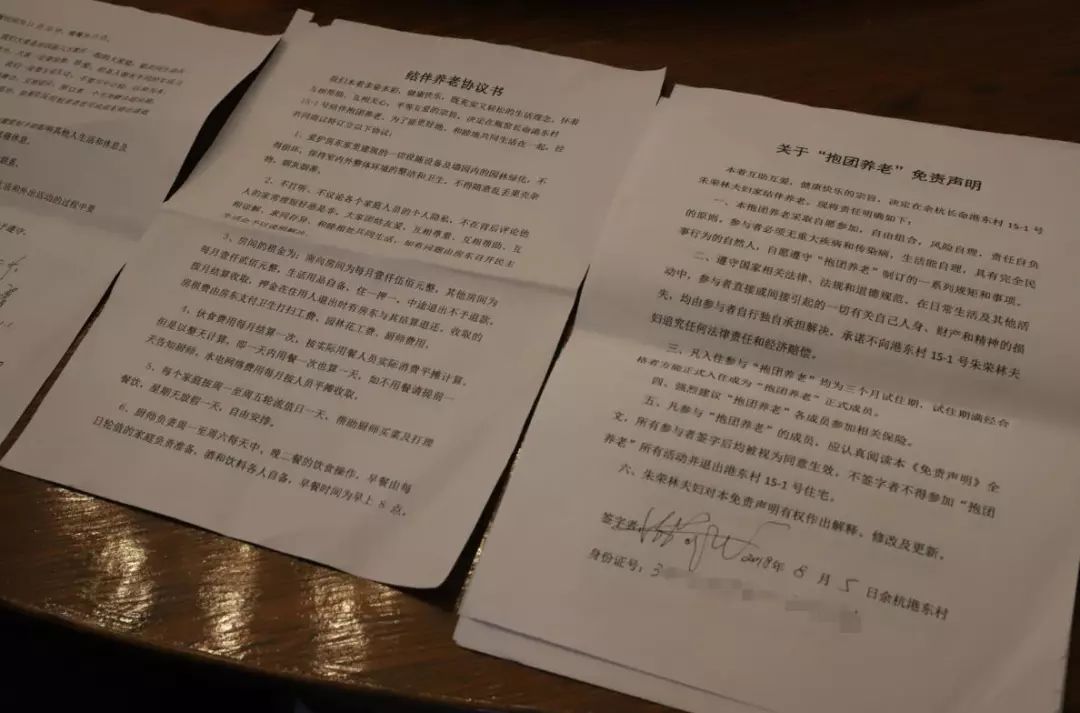 其他人生活和休息及
活和外出活动的过程中要
结伴养老协议书
我们本着余龄不孤,健康快乐,既充实又轻松的生活理念,怀着
互相帮助、互相关心、平等互爱的宗旨,决定在瓶窑长命港东村
15-1 号结伴抱团养老。为了能更好地、和睦地共同生活在一起,经
共同商议将订立以下协议:
1、爱护房东家里建筑的一切设施设备及墙园内的园林绿化,不
得损坏,保持室内外整体环境的整洁和卫生,不得随意乱丢果壳杂
物、烟灰烟蒂。
2、不打听、不议论各个家庭人员的个人隐私,不在背后评论他
人的家常理短好恶是非,大家团结友爱、互相尊重、互相帮助、互
相谅解、求同存异,和睦相处共同生活,如有问题由房东召开民主
3、房间的租金为:南向房间为每月壹仟伍佰元整,其他房间为
每月壹仟贰佰元整,生活用品自备,住一押一,中途退出不予退款,
按月结算收取,押金在住用人退出时有房东与其结算退还,收取的
房租费由房东支付卫生打扫工费、园林花工费、厨师费用。
4、伙食费用每月结算一次,按实际用餐人员实际消费平摊计算,
但是以整天计算,即一天内用餐一次也算一天,如不用餐请提前一
天告知厨师,水电网络费用每月按人员平摊收取。
5、每个家庭按周一至周五轮流值日一天,帮助厨师买菜及打理
餐饮,星期天放假一天,自由安排。
6、厨师负责周一至周六每天中、晚二餐的饮食操作,早餐由每
日轮值的家庭负责准备,酒和饮料各人自备,早餐时间为早上 8 点,
关于“抱团养老”免责声明
本着互助互爱,健康快乐的宗旨,决定在余杭长命港东村 15-1 号
朱荣林夫妇家结伴养老,现将责任明确如下:
一、本抱团养老采取自愿参加,自由组合,风险自理,责任自负
的原则,参与者必须无重大疾病和传染病,生活能自理,具有完全民
事行为的自然人,自愿遵守“抱团养老”制订的一系列规矩和事项。
二、遵守国家相关法律、法规和道德规范,在日常生活及其他活
动中,参与者直接或间接引起的一切有关自己人身、财产和精神的损
失,均由参与者自行独自承担解决,承诺不向港东村 15-1 号朱荣林夫
妇追究任何法律责任和经济赔偿。
三、凡入住参与“抱团养老”均为三个月试住期,试住期满经合
格者方能正式入住成为“抱团养老”正式成员。
四、强烈建议“抱团养老”各成员参加相关保险。
五、凡参与“抱团养老”的成员,应认真阅读本《免责声明》全
文,所有参与者签字后均被视为同意生效,不签字者不得参加“抱团
养老”所有活动并退出港东村 15-1 号住宅。
六、朱荣林夫妇对本免责声明有权作出解释、修改及更新。
签字者:
2018年 8 月 5 日余杭港东村
身份证号:3